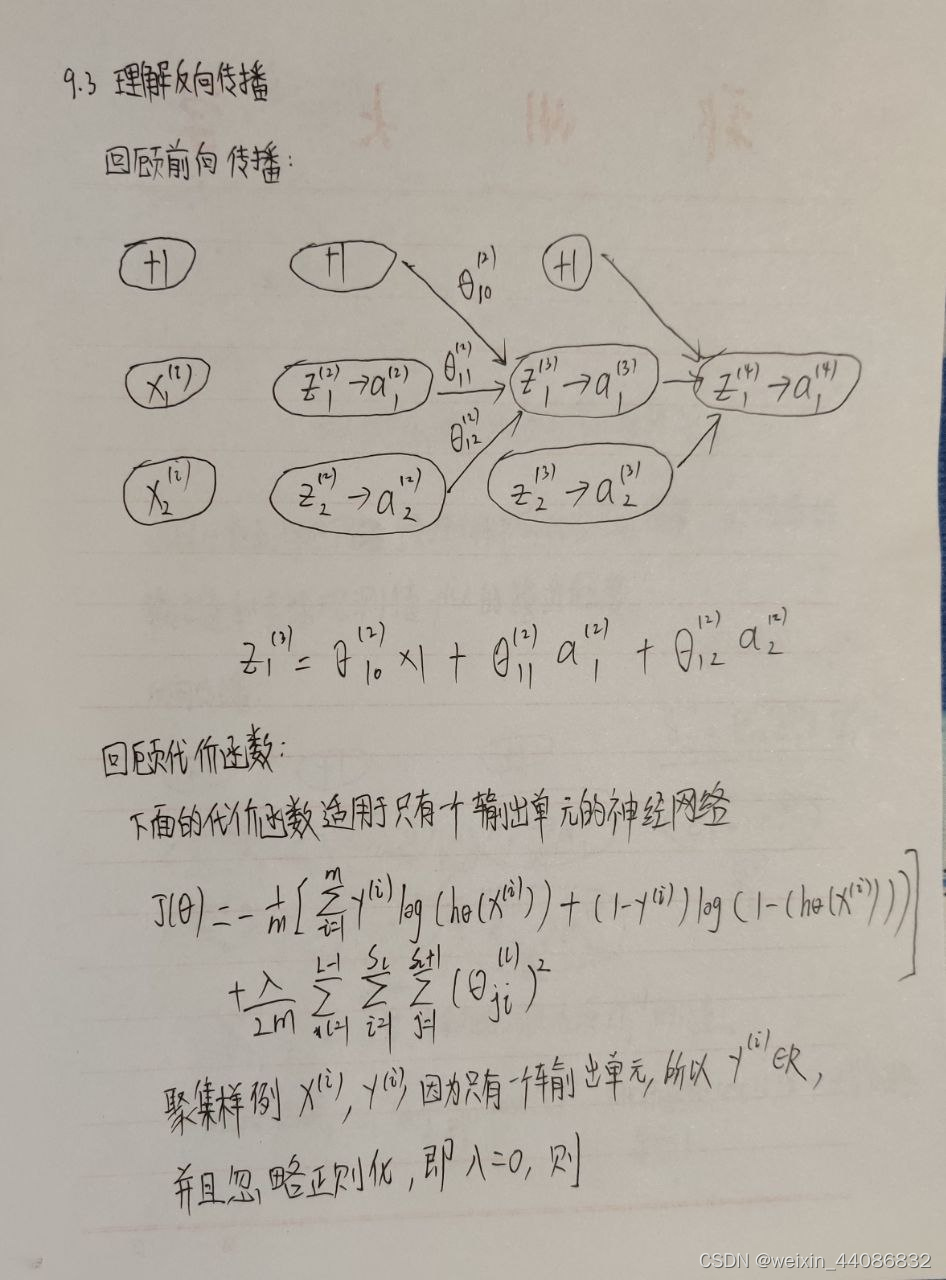 9.3 理解反向传播
回顾前向传播:
+1 +1 θ₁₀⁽²⁾ +1
x₁⁽ⁱ⁾ z₁⁽²⁾→a₁⁽²⁾ θ₁₁⁽²⁾ z₁⁽³⁾→a₁⁽³⁾ → z₁⁽⁴⁾→a₁⁽⁴⁾
θ₁₂⁽²⁾
x₂⁽ⁱ⁾ z₂⁽²⁾→a₂⁽²⁾ z₂⁽³⁾→a₂⁽³⁾
z₁⁽³⁾ = θ₁₀⁽²⁾ ×1 + θ₁₁⁽²⁾ a₁⁽²⁾ + θ₁₂⁽²⁾ a₂⁽²⁾
回顾代价函数:
下面的代价函数适用于只有一个输出单元的神经网络
J(θ) = -1/m [ ∑_{i=1}^{m} y⁽ⁱ⁾ log(hθ(x⁽ⁱ⁾)) + (1-y⁽ⁱ⁾) log(1-(hθ(x⁽ⁱ⁾))) ]
+ λ/2m ∑_{l=1}^{L-1} ∑_{i=1}^{S_l} ∑_{j=1}^{S_l+1} (θ_{ji}^{(l)})²
聚集样例 x⁽ⁱ⁾, y⁽ⁱ⁾, 因为只有一个输出单元, 所以 y⁽ⁱ⁾∈R,
并且忽略正则化, 即 λ=0, 则
CSDN @weixin_44086832